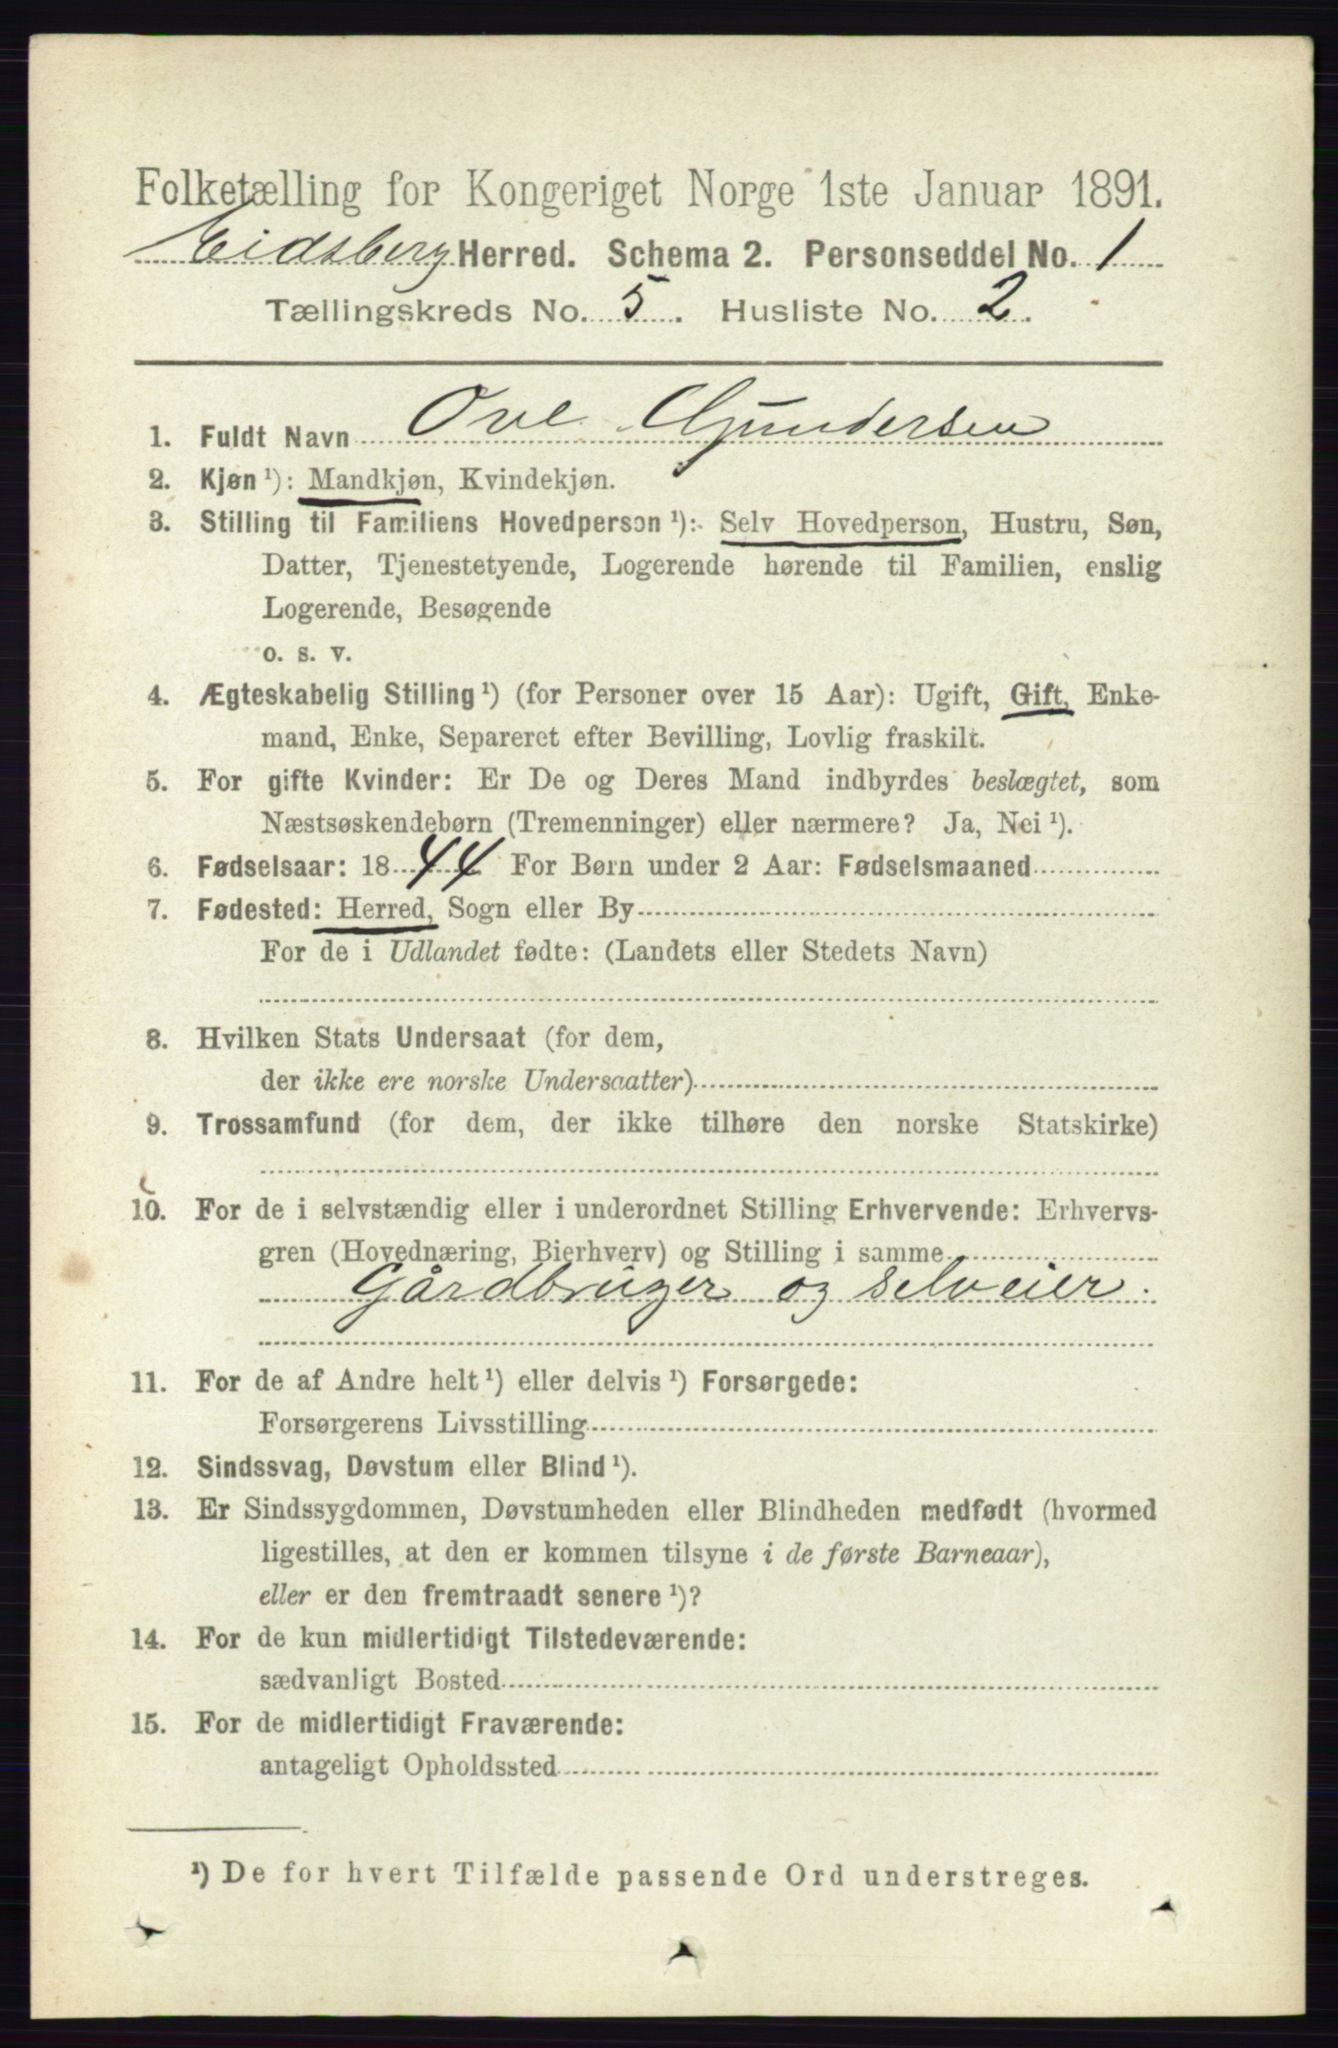 Folketælling for Kongeriget Norge 1ste Januar 1891.
Eidsberg Herred. Schema 2. Personseddel No. 1
Tællingskreds No. 5. Husliste No. 2.
1. Fuldt Navn Ove Gundersen
2. Kjøn ¹): Mandkjøn, Kvindekjøn.
3. Stilling til Familiens Hovedperson ¹): Selv Hovedperson, Hustru, Søn,
Datter, Tjenestetyende, Logerende hørende til Familien, enslig
Logerende, Besøgende
o. s. v.
4. Ægteskabelig Stilling ¹) (for Personer over 15 Aar): Ugift, Gift, Enke-
mand, Enke, Separeret efter Bevilling, Lovlig fraskilt.
5. For gifte Kvinder: Er De og Deres Mand indbyrdes beslægtet, som
Næstsøskendebørn (Tremenninger) eller nærmere? Ja, Nei ¹).
6. Fødselsaar: 1844 For Børn under 2 Aar: Fødselsmaaned
7. Fødested: Herred, Sogn eller By
For de i Udlandet fødte: (Landets eller Stedets Navn)
8. Hvilken Stats Undersaat (for dem,
der ikke ere norske Undersaatter)
9. Trossamfund (for dem, der ikke tilhøre den norske Statskirke)
10. For de i selvstændig eller i underordnet Stilling Erhvervende: Erhvervs-
gren (Hovednæring, Bierhverv) og Stilling i samme
Gårdbruger og selveier.
11. For de af Andre helt ¹) eller delvis ¹) Forsørgede:
Forsørgerens Livsstilling
12. Sindssvag, Døvstum eller Blind ¹).
13. Er Sindssygdommen, Døvstumheden eller Blindheden medfødt (hvormed
ligestilles, at den er kommen tilsyne i de første Barneaar),
eller er den fremtraadt senere ¹)?
14. For de kun midlertidigt Tilstedeværende:
sædvanligt Bosted
15. For de midlertidigt Fraværende:
antageligt Opholdssted
¹) De for hvert Tilfælde passende Ord understreges.